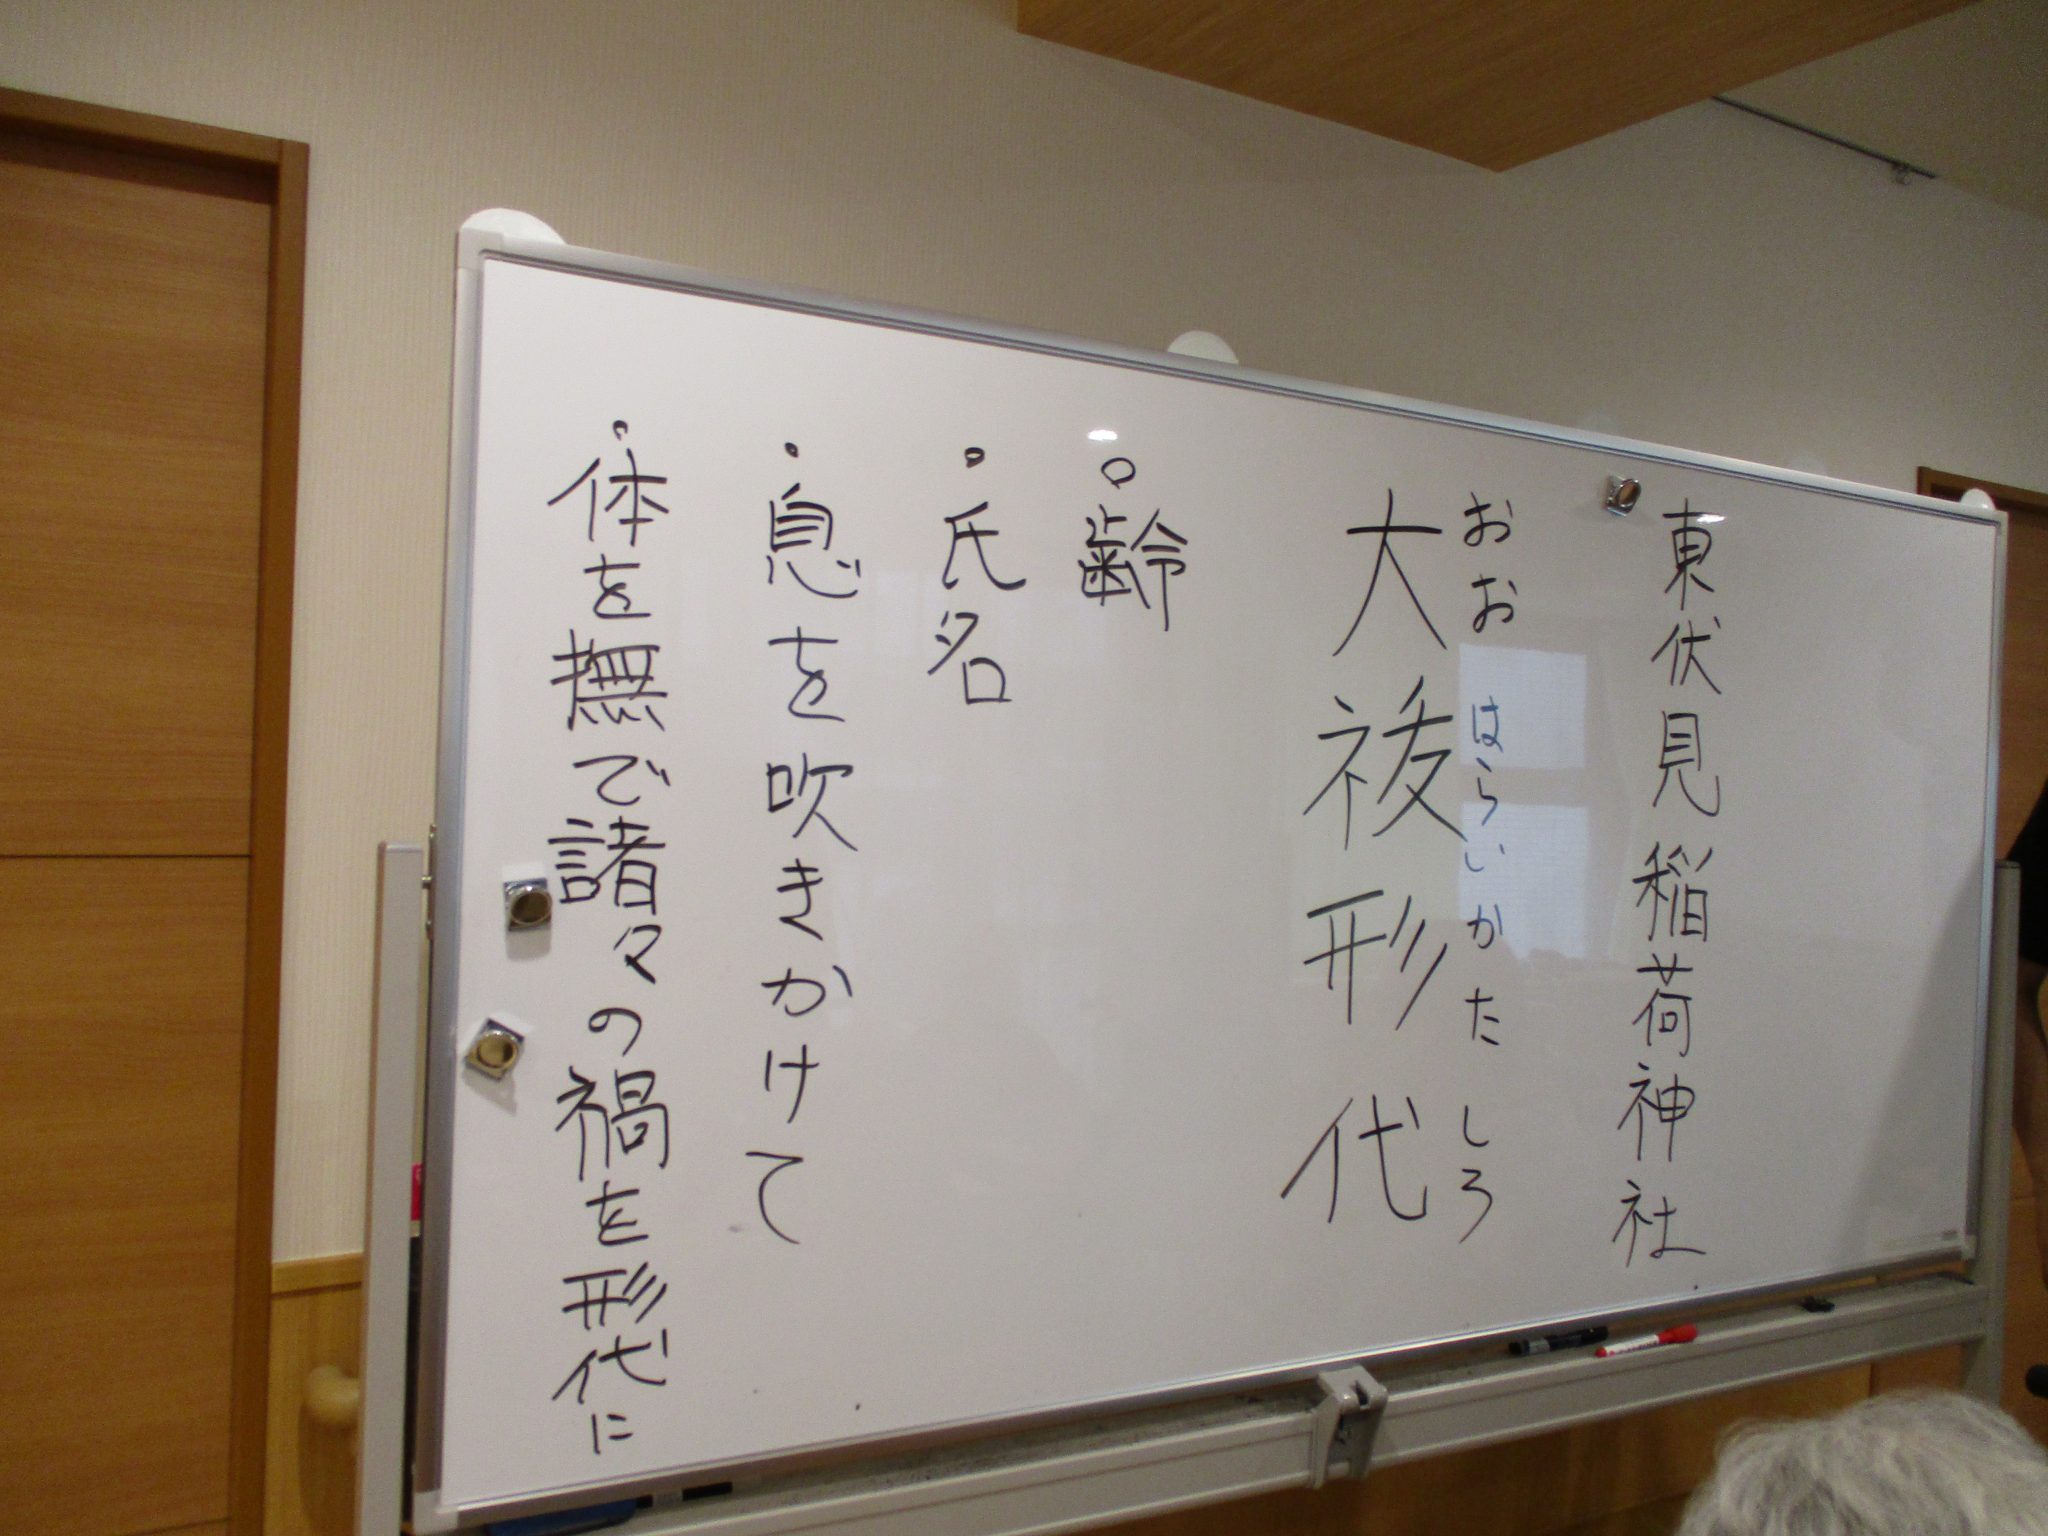 東伏見稲荷神社
おおはらいかたしろ
大祓形代
齢
・氏名
・息を吹きかけて
・体を撫で諸々の禍を形代に